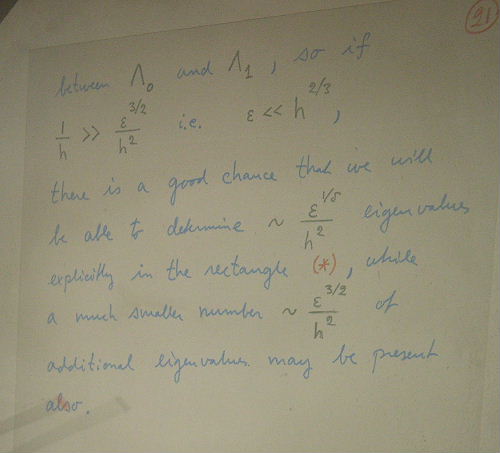 21
between Λ₀ and Λ₁, so if
1/h >> ε^{3/2}/h² i.e. ε << h^{2/3},
there is a good chance that we will
be able to determine ~ ε^{1/5}/h² eigenvalues
explicitly in the rectangle (*), while
a much smaller number ~ ε^{3/2}/h² of
additional eigenvalues may be present
also.